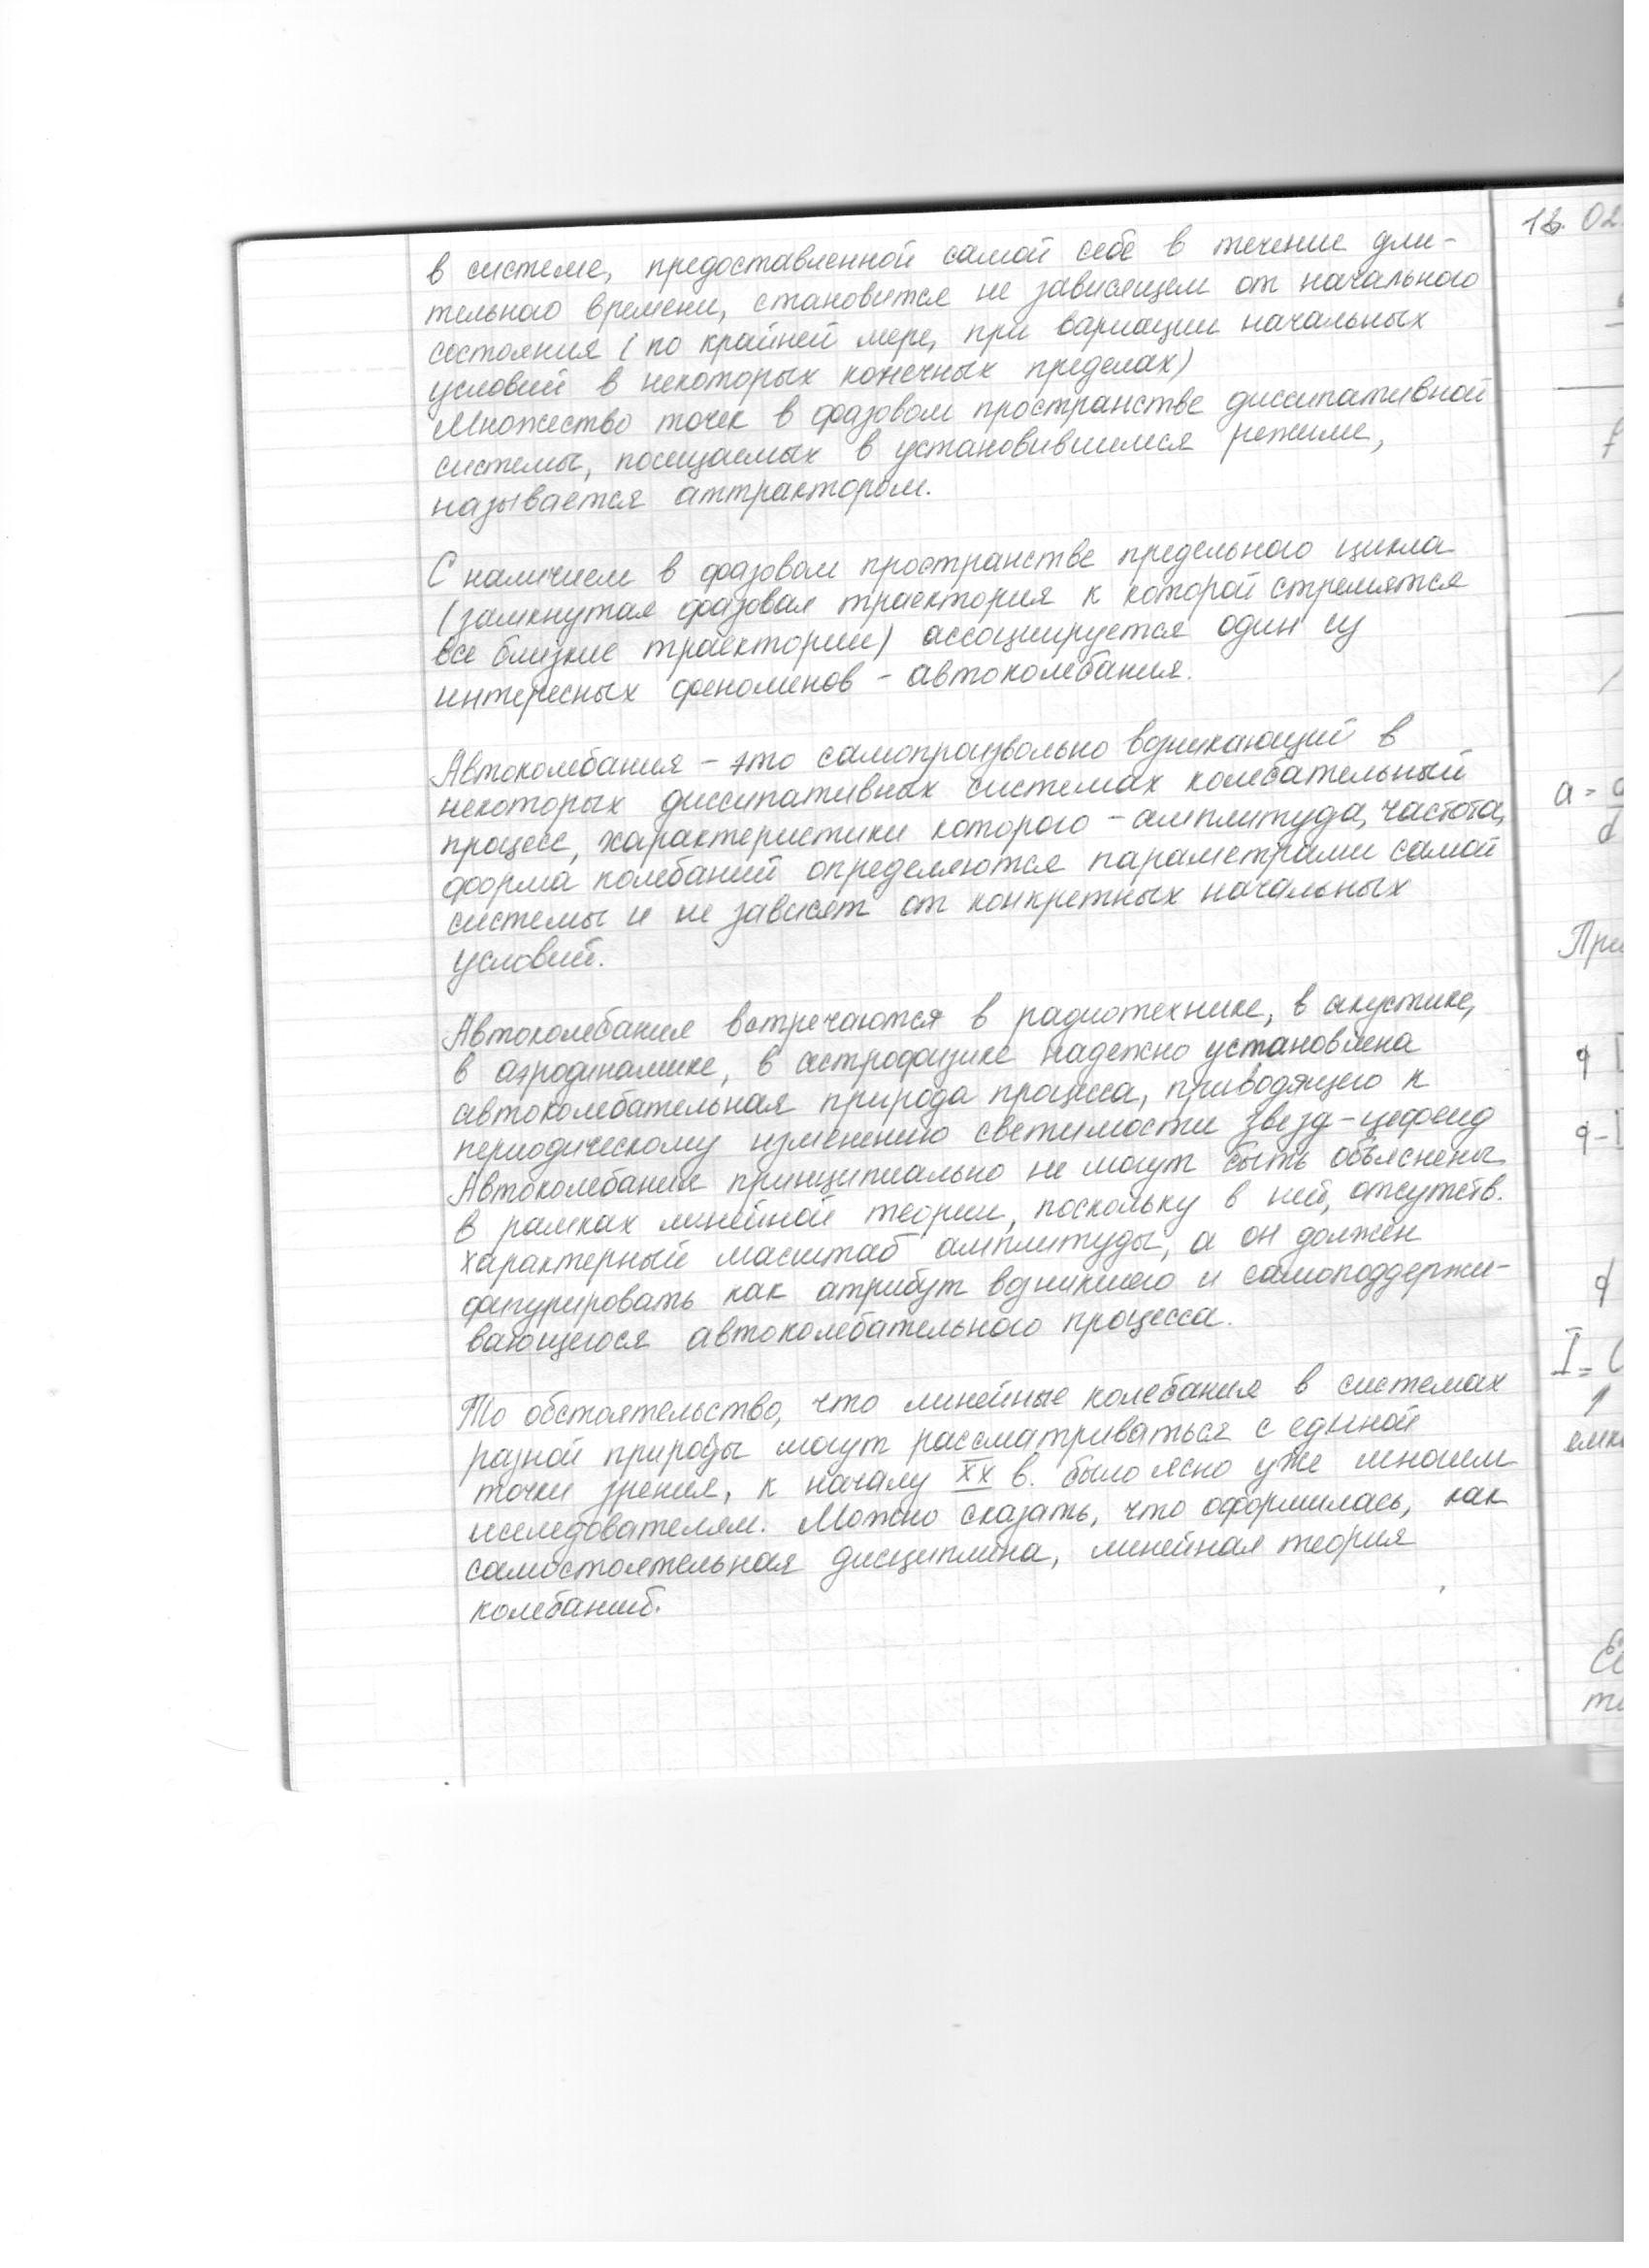 в системе, предоставленной самой себе в течение дли-
тельного времени, становится не зависящем от начального
состояния (по крайней мере, при вариации начальных
условий в некоторых конечных пределах)
Множество точек в фазовом пространстве диссипативной
системы, посещаемых в установившимся режиме,
называется аттрактором.
С наличием в фазовом пространстве предельного цикла
(замкнутая фазовая траектория к которой стремятся
все близкие траектории) ассоциируется один из
интересных феноменов - автоколебания.
Автоколебания - это самопроизвольно возникающий в
некоторых диссипативных системах колебательный
процесс, характеристики которого - амплитуда, частота,
форма колебаний определяются параметрами самой
системы и не зависят от конкретных начальных
условий.
Автоколебания встречаются в радиотехнике, в акустике,
в аэродинамике, в астрофизике надежно установлена
автоколебательная природа процесса, приводящего к
периодическому изменению светимости звезд-цефеид
Автоколебания принципиально не могут быть объяснены
в рамках линейной теории, поскольку в ней, отсутств.
характерный масштаб амплитуды, а он должен
фигурировать как атрибут возникшего и самоподдержи-
вающегося автоколебательного процесса.
То обстоятельство, что линейные колебания в системах
разной природы могут рассматриваться с единой
точки зрения, к началу XX в. было ясно уже многим
исследователям. Можно сказать, что оформилась, как
самостоятельная дисциплина, линейная теория
колебаний.
02
a =
d
При
q
q -
q
I = C
емк